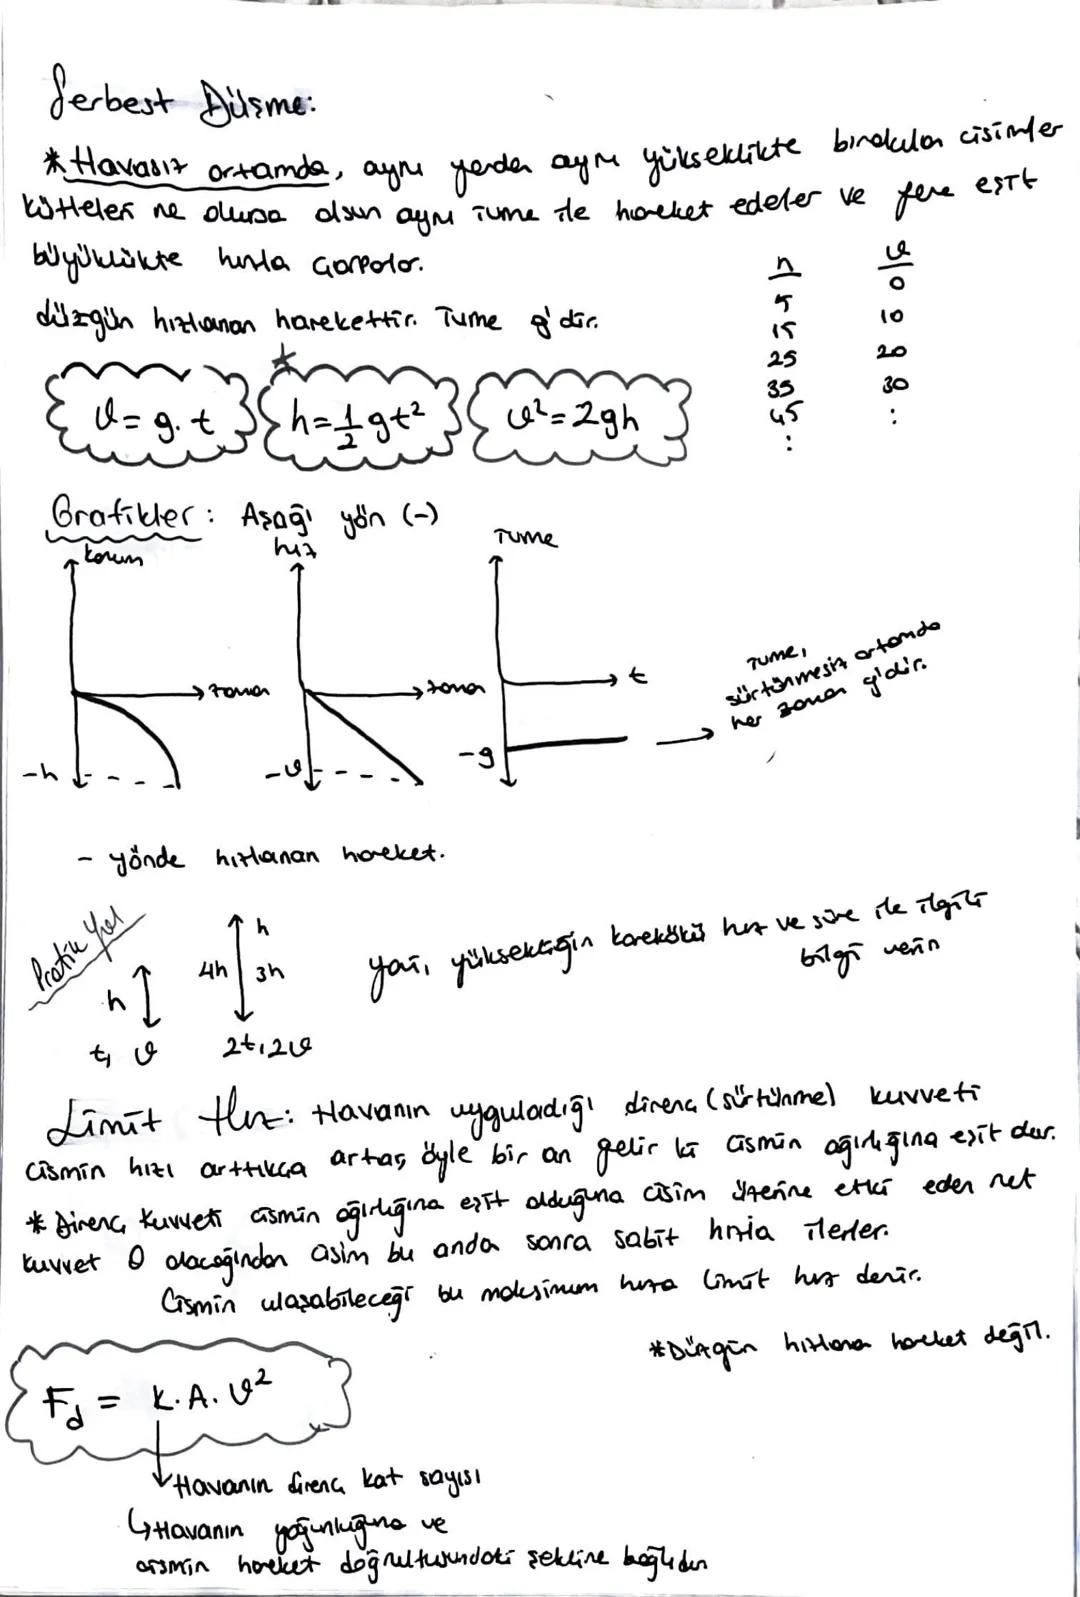 Serbest Düşme:
* Havasız ortamda, aynı yerden aynı yükseklikte bırakılan cisimler
kütleleri ne olursa olsun aynı ivme ile hareket ederler ve yere eşit
büyüklükte hızla çarparlar.
düzgün hızlanan harekettir. İvme g'dir.
h ϑ
5 0
15 10
25 20
35 30
45 :
:
*
ϑ = g.t h = 1/2 gt² ϑ² = 2gh
Grafikler: Aşağı yön (-)
konum hız ivme
zaman zaman t
-h -ϑ -g
ivme,
sürtünmesiz ortamda
her zaman g'dir.
- yönde hızlanan hareket.
Pratik Yol
h 4h h 3h
t, ϑ 2t, 2ϑ
yani, yüksekliğin karekökü hız ve süre ile ilgili
bilgi verir
Limit Hız: Havanın uyguladığı direnç (sürtünme) kuvveti
cismin hızı arttıkça artar, öyle bir an gelir ki cismin ağırlığına eşit olur.
* Direnç kuvveti cismin ağırlığına eşit olduğuna cisim üzerine etki eden net
kuvvet 0 olacağından cisim bu andan sonra sabit hızla ilerler.
Cismin ulaşabileceği bu maksimum hıza limit hız denir.
* Düzgün hızlanan hareket değil.
F_d = K.A.ϑ²
Havanın direnç kat sayısı
↳ Havanın yoğunluğuna ve
cismin hareket doğrultusundaki şekline bağlıdır